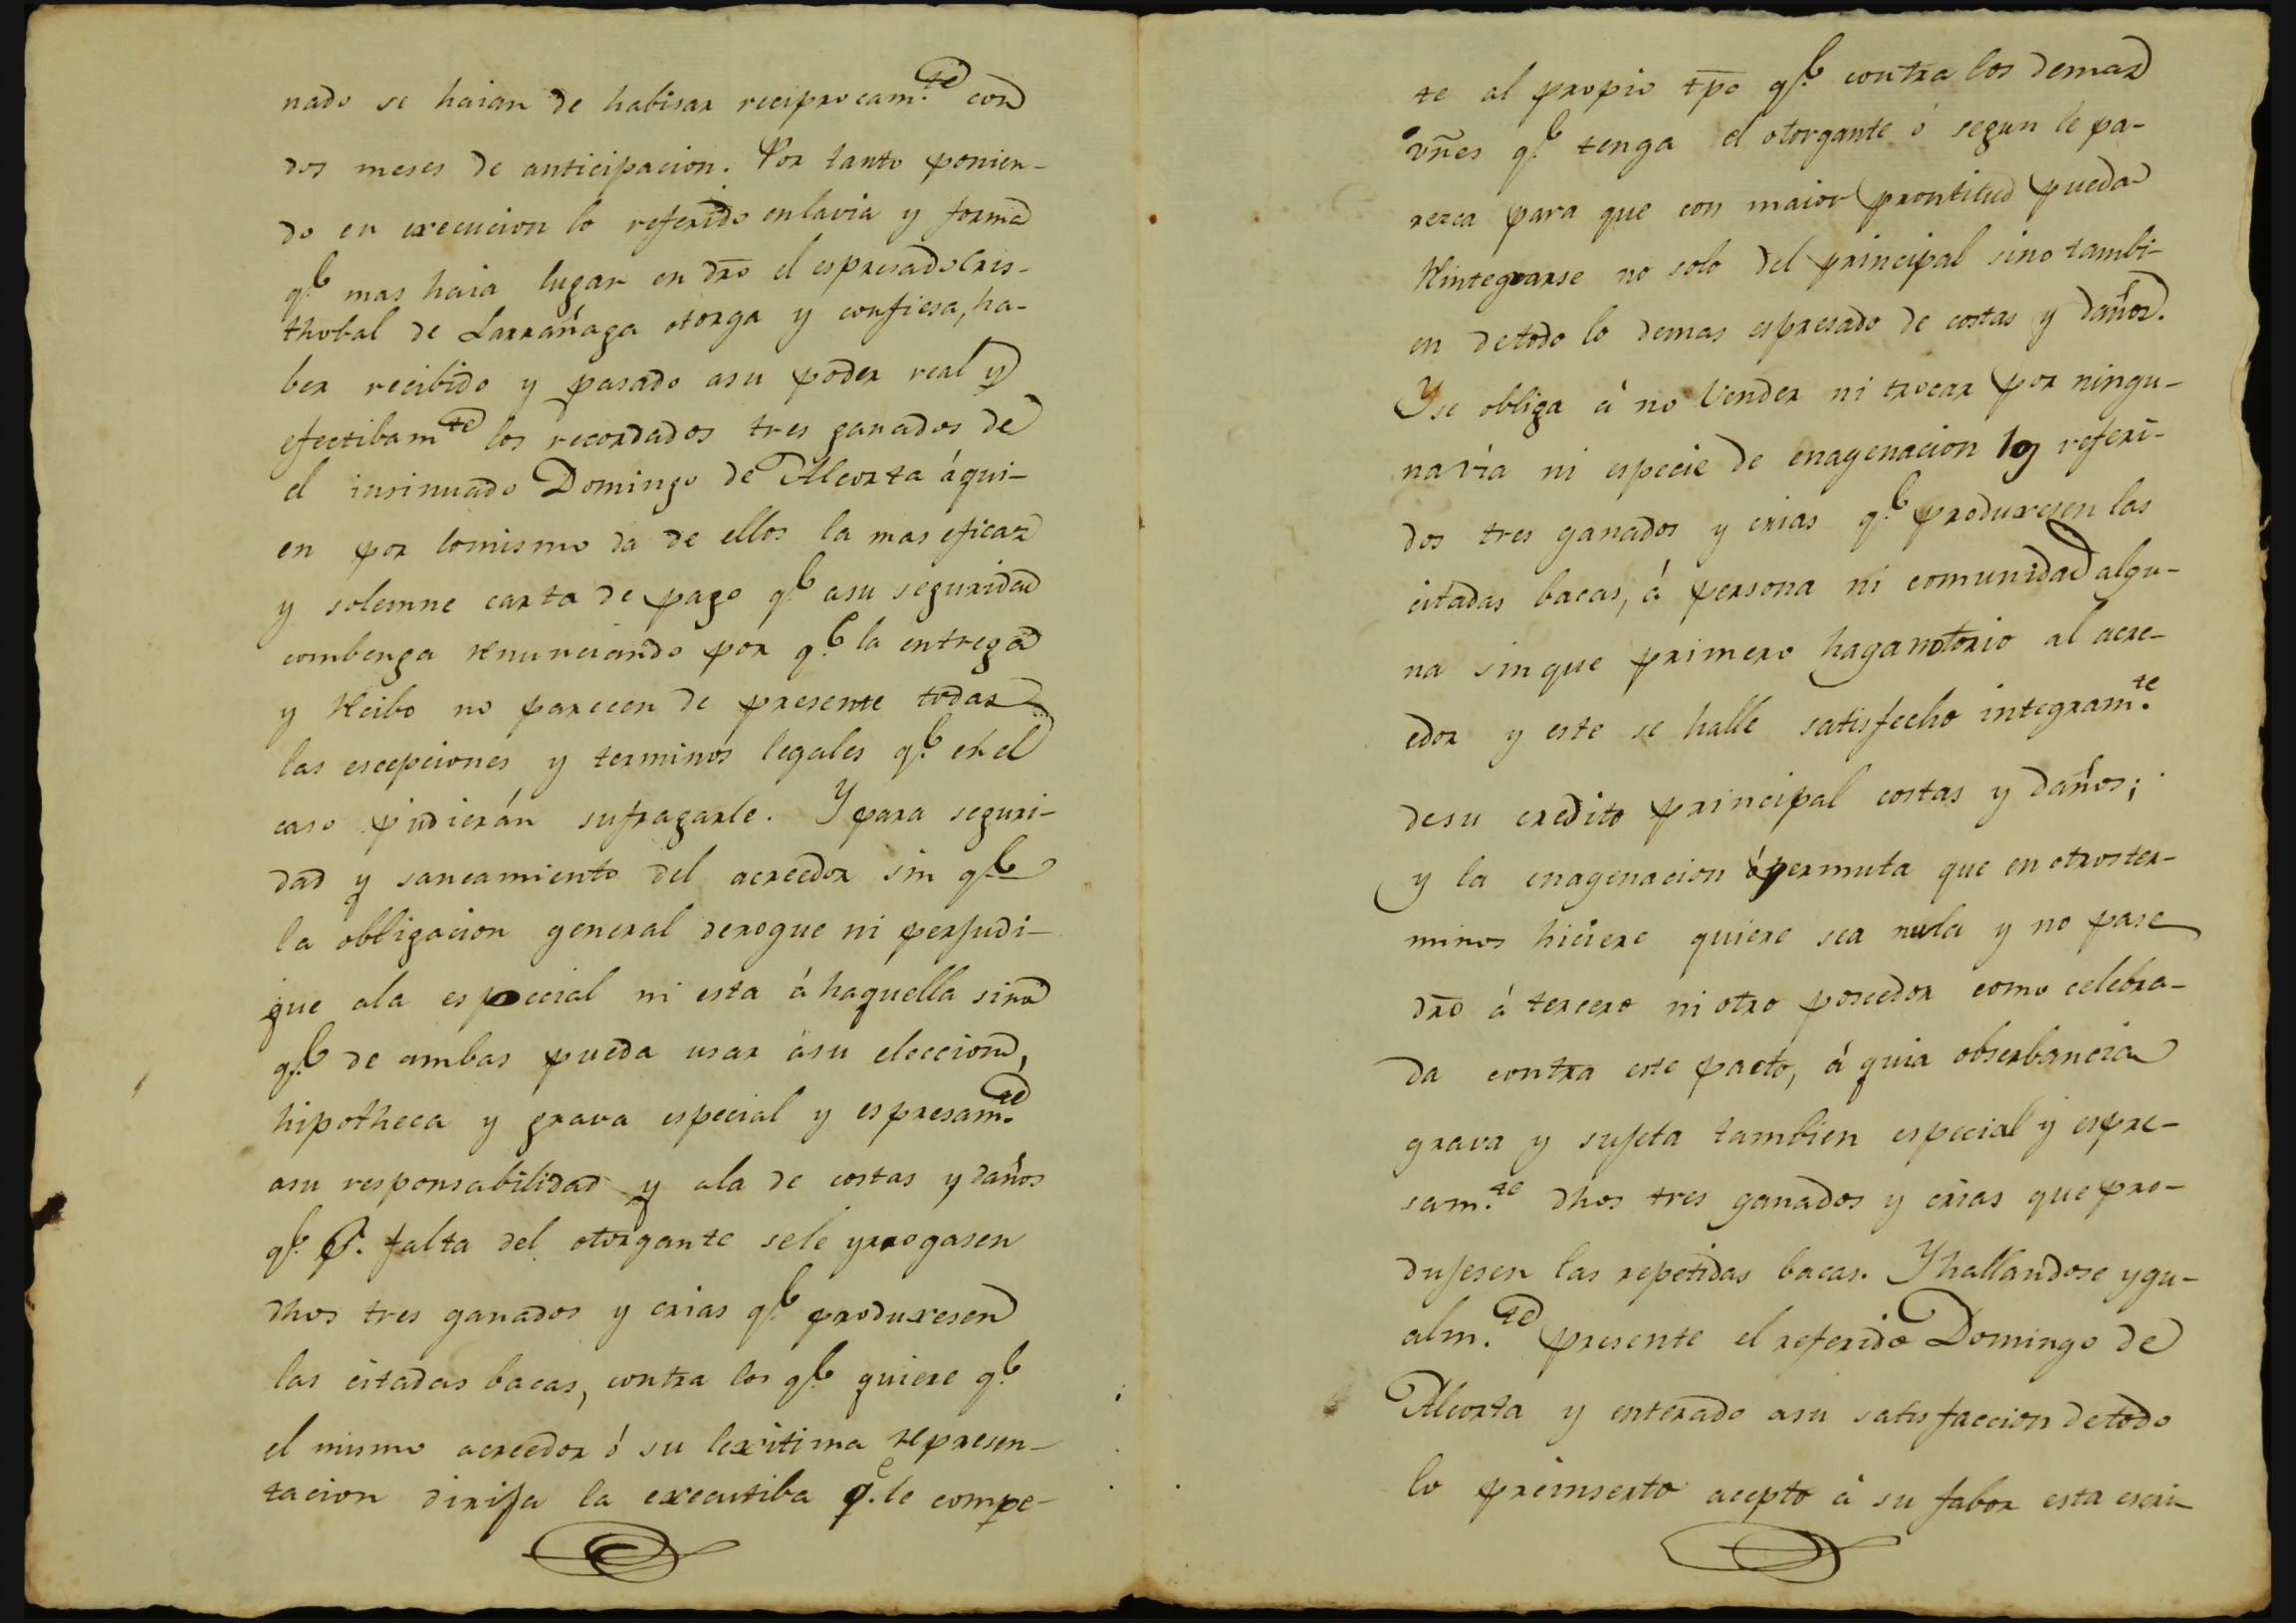 nado se haian de habisar reciprocam.te con
dos meses de anticipacion. Por tanto ponien-
do en execucion lo referido enlavia y forma
q.e mas haia lugar en dro el espresado Cris-
thobal de Larrañaga otorga y confiesa, ha-
ber recibido y pasado asu poder real y
efectibam.te los recordados tres ganados de
el insinuado Domingo de Alcorta áqui-
en por lomismo da de ellos la mas eficaz
y solemne carta de pago q.e asu seguridad
combenga renunciando por q.e la entrega
y recibo no parecen de presente todas
las escepciones y terminos legales q.e en el
caso pudierán sufragarle. Y para seguri-
dad y saneamiento del acreedor sin q.e
la obligacion general derogue ni perjudi-
que ala especial ni esta á haquella sino
q.e de ambas pueda usar asu eleccion,
hipotheca y grava especial y espresam.te
asu responsabilidad y ala de costas y daños
q.e p.r falta del otorgante sele yrrogasen
dhos tres ganados y crias q.e produxesen
las citadas bacas, contra los q.e quiere q.e
el mismo acreedor ó su lexitima represen-
tacion dirija la executiba q.e le compe-
te al propio tpo q.e contra los demas
vñes q.e tenga el otorgante ó segun le pa-
rezca para que con maior prontitud pueda
Rintegrarse no solo del principal sino tambi-
en detodo lo demas espresado de costas y daños.
Y se obliga á no Vender ni trocar por ningu-
na via ni especie de enagenacion los referi-
dos tres ganados y crias q.e produxesen las
citadas bacas, á persona ni comunidad algu-
na sinque primero haga notorio al acre-
edor y este se halle satisfecho integram.te
desu credito principal costas y daños;
y la enagenacion ó permuta que en otroster-
minos hiciere quiere sea nula y no pase
dro á tercero ni otro poseedor como celebra-
da contra este pacto, á quia obserbancia
grava y sujeta tambien especial y espre-
sam.te dhos tres ganados y crias que pro-
dujesen las repetidas bacas. Y hallandose ygu-
alm.te presente el referido Domingo de
Alcorta y enterado asu satisfaccion detodo
lo preinserto acepto á su fabor esta escri-